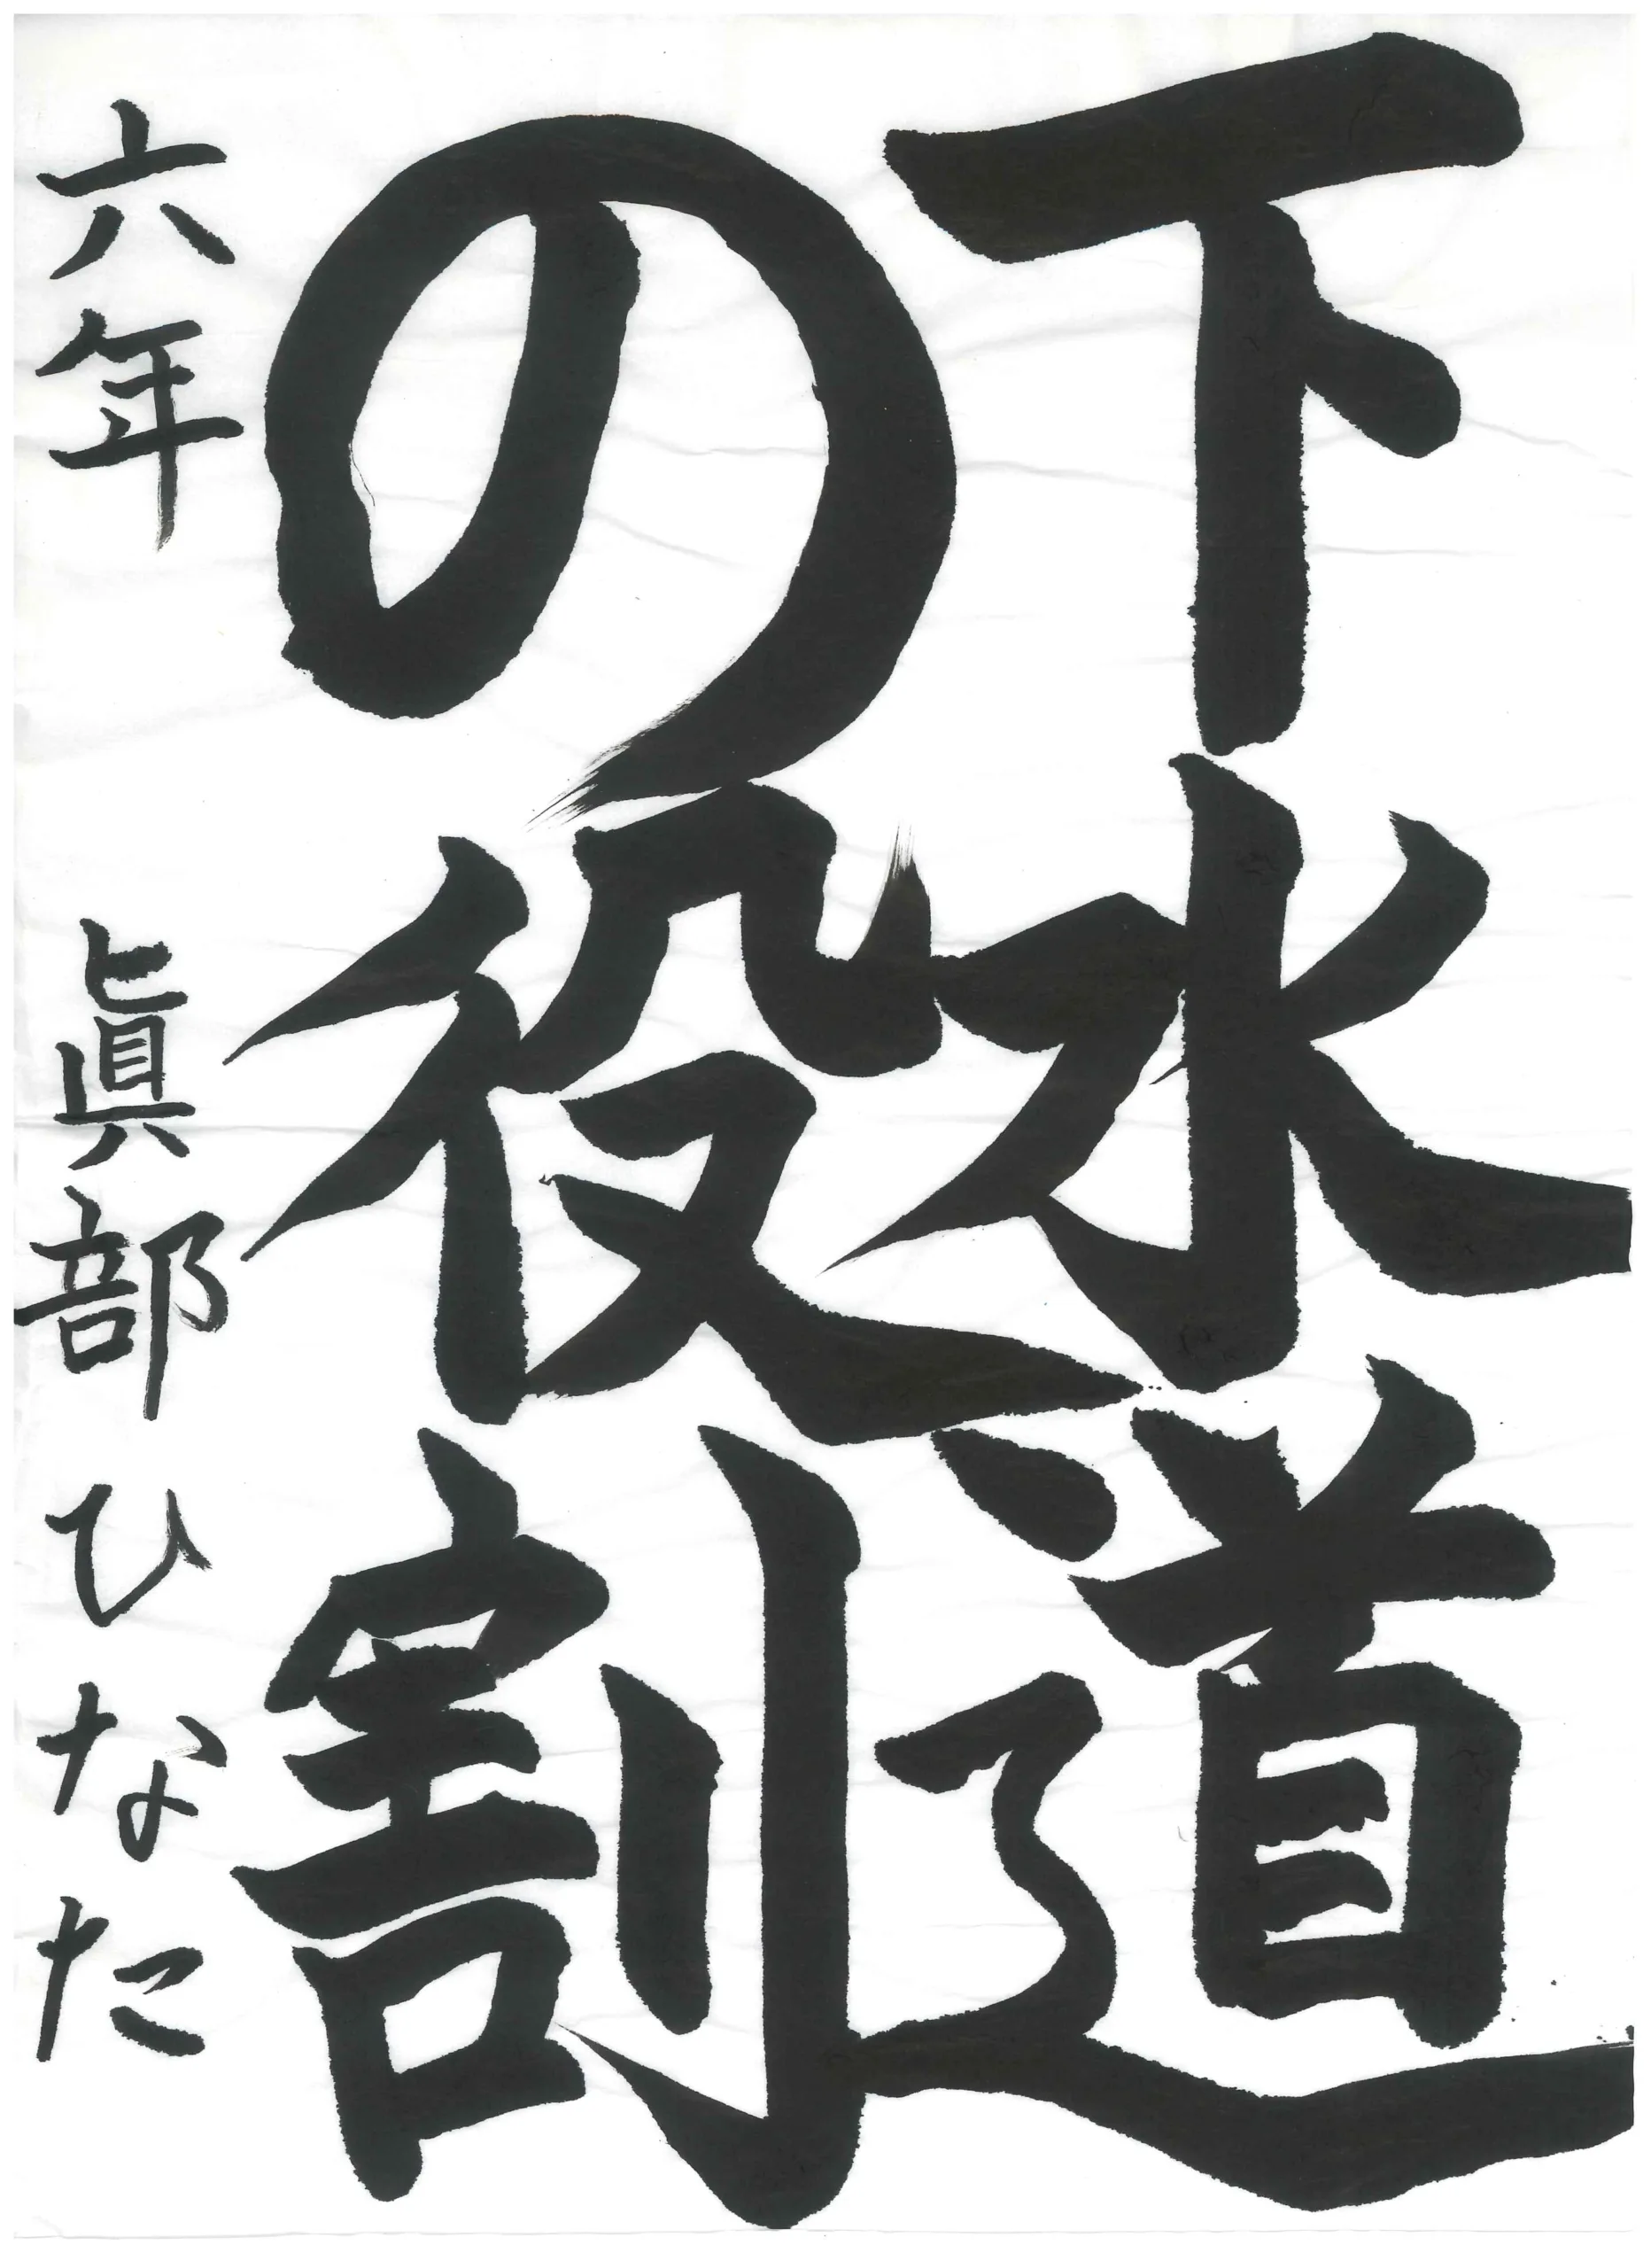 下水道
の役割
六年 眞部ひなた